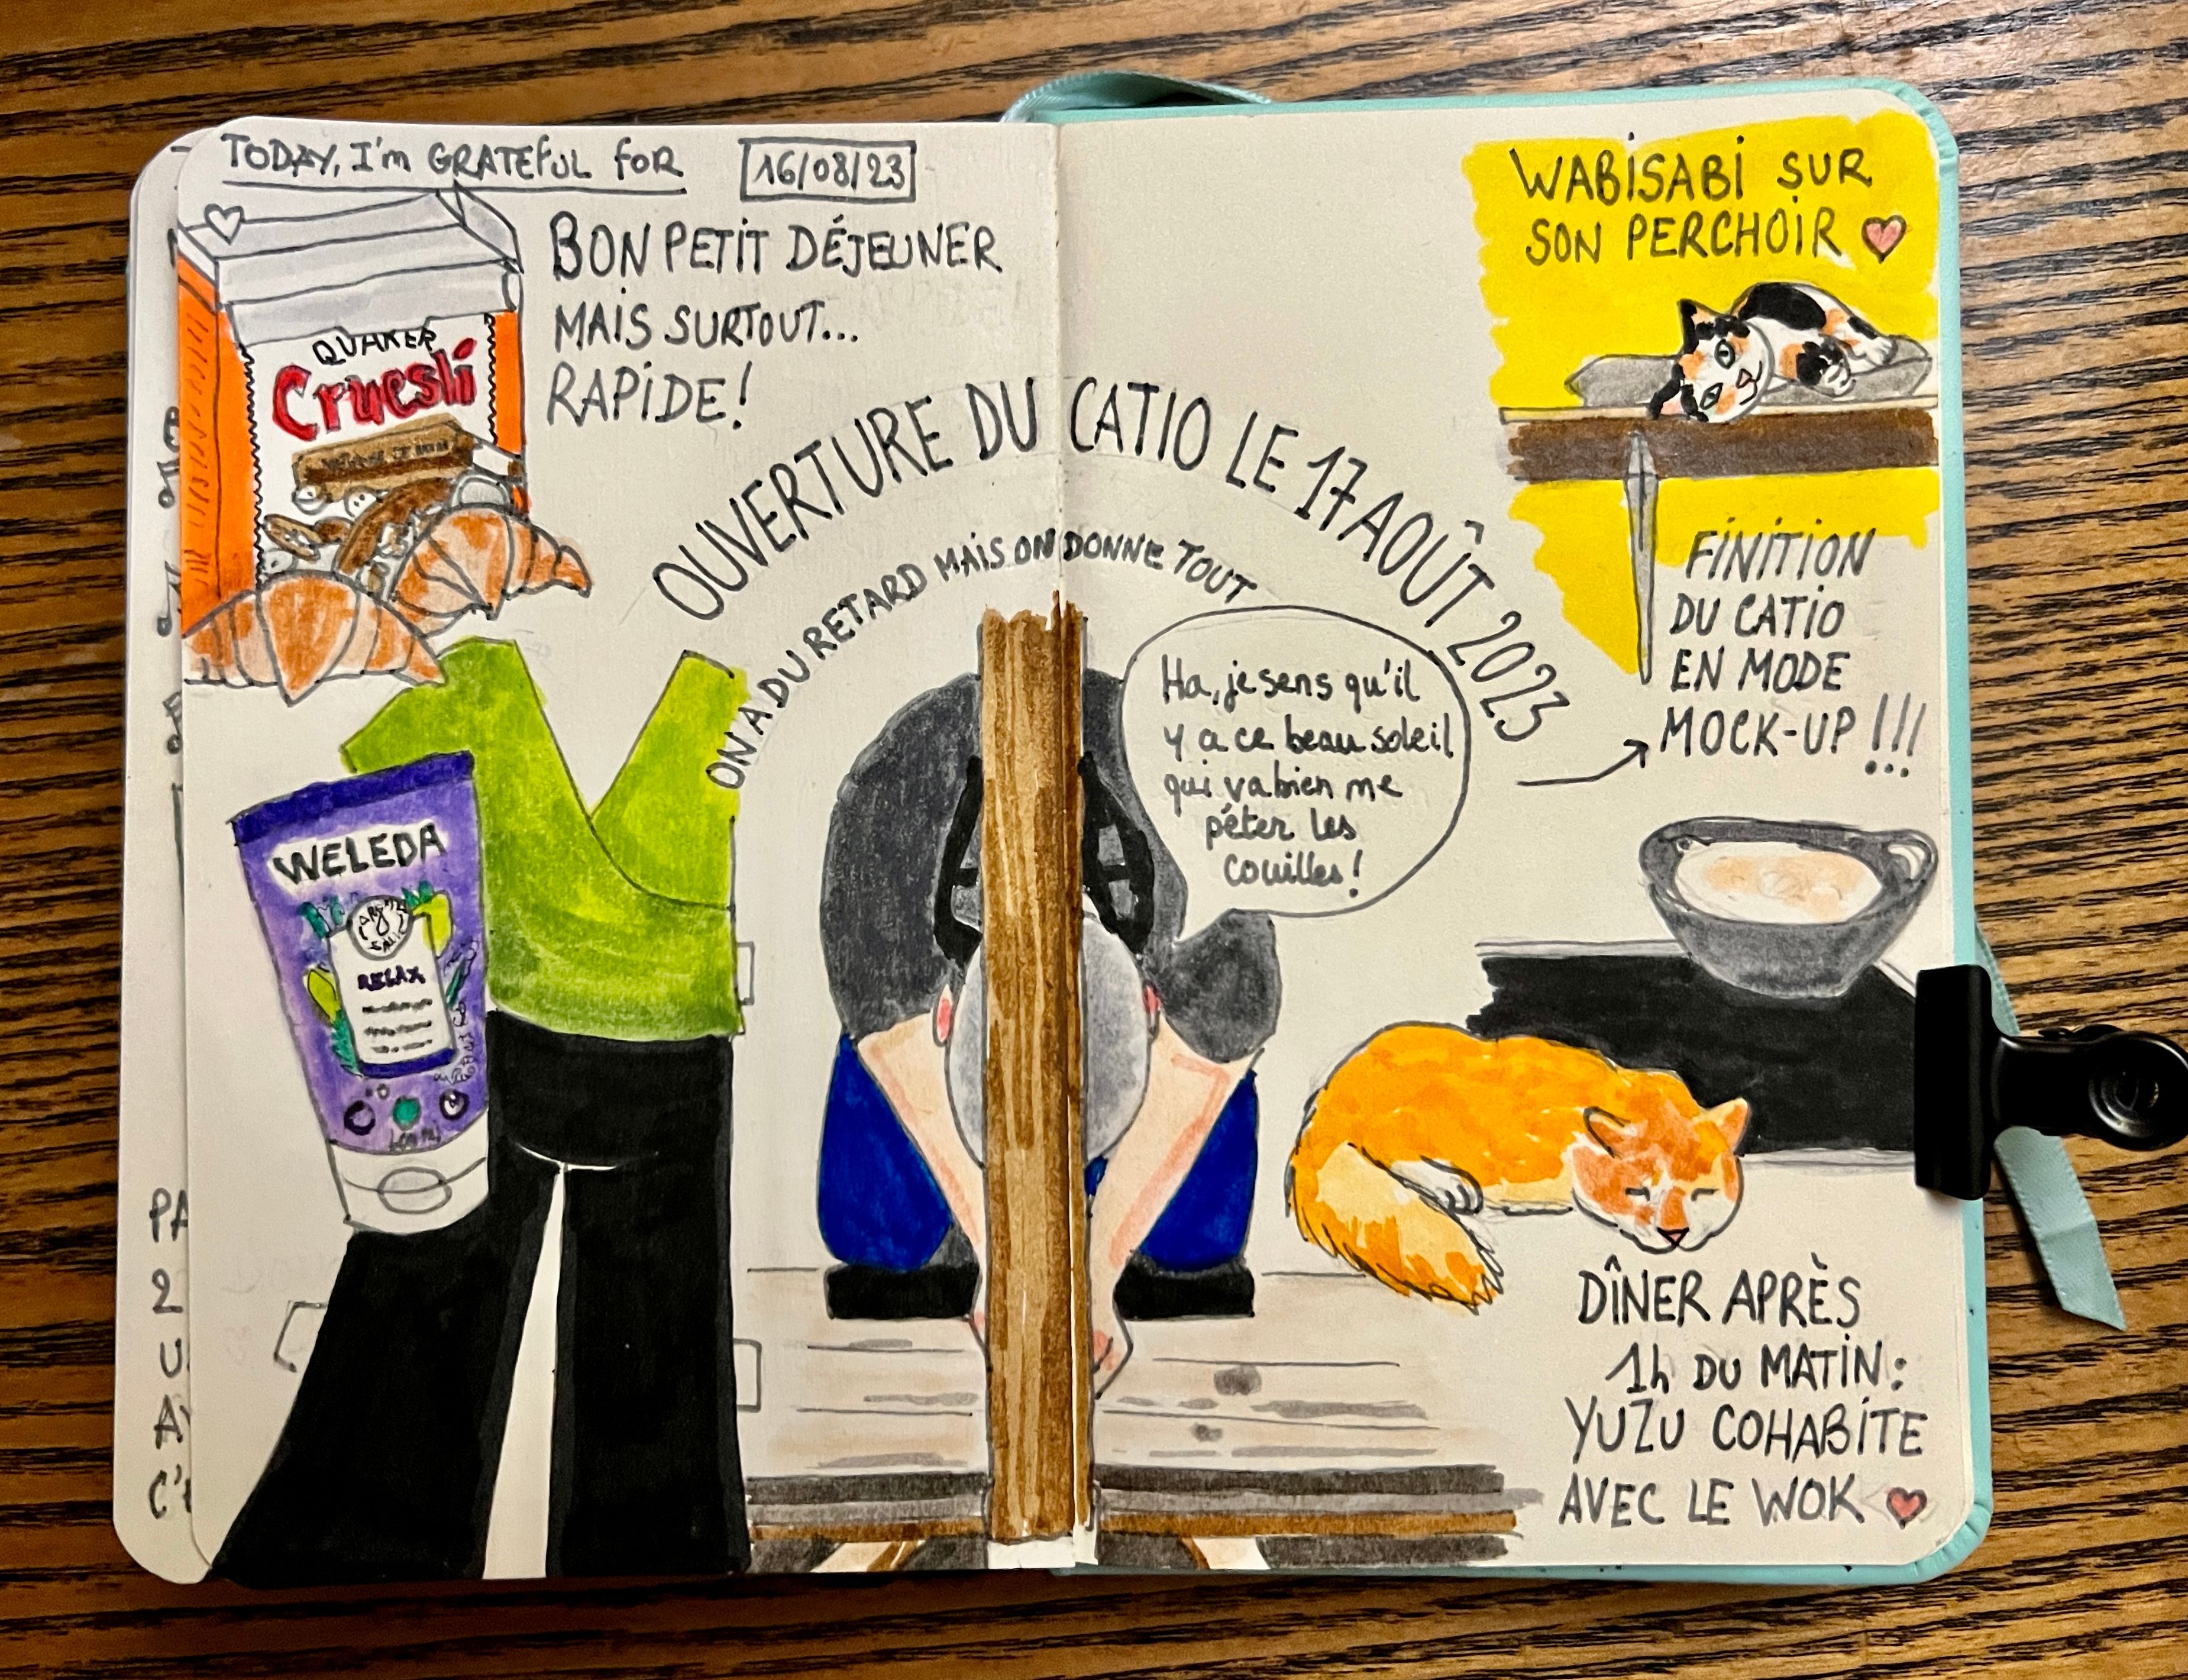 TODAY, I'm GRATEFUL FOR
16/08/23
BON PETIT DÉJEUNER
MAIS SURTOUT...
RAPIDE!
QUAKER
Cruesli
OUVERTURE DU CATIO LE 17 AOÛT 2023
ON A DU RETARD MAIS ON DONNE TOUT
Ha, je sens qu'il
y a ce beau soleil
qui va bien me
péter les
couilles!
WELEDA
RELAX
WABISABI SUR
SON PERCHOIR
FINITION
DU CATIO
EN MODE
MOCK-UP !!!
DÎNER APRÈS
1h DU MATIN:
YUZU COHABITE
AVEC LE WOK
PA
2
U